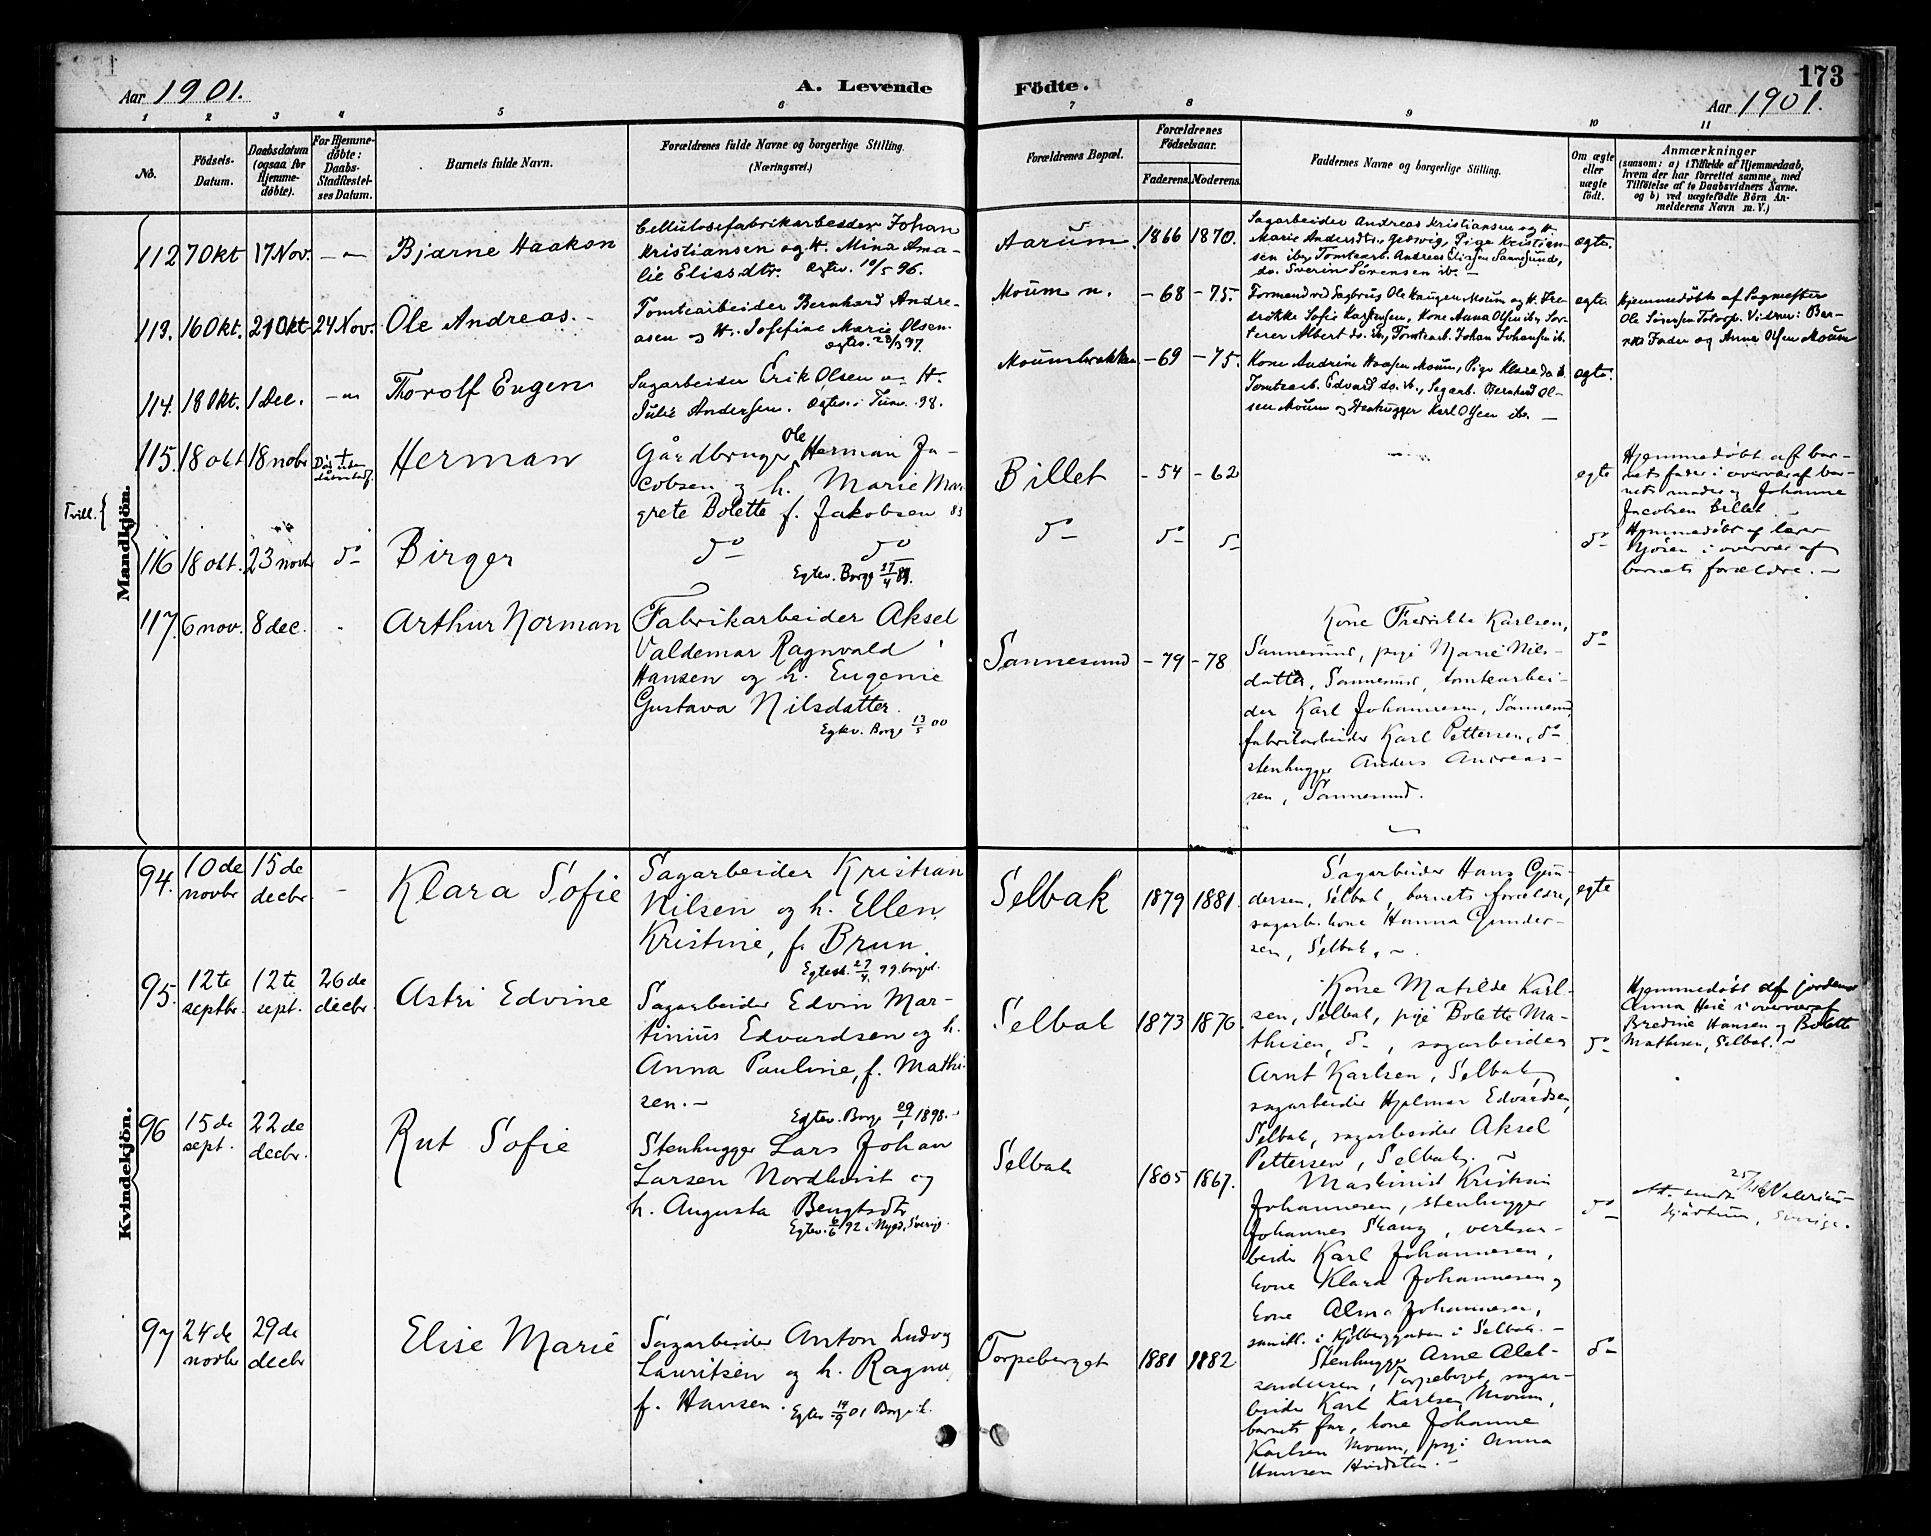 Aar 1901.
A. Levende
Födte.
173
Aar 1901.
1 2 3 4 5 6 7 8 9 10 11
No.
Födsels-
Datum.
Daabsdatum
(ogsaa for
Hjemme-
döbte).
For Hjemme-
döbte:
Daabs-
Stadfæstel-
ses Datum.
Barnets fulde Navn.
Forældrenes fulde Navne og borgerlige Stilling.
(Næringsvei.)
Forældrenes Bopæl.
Forældrenes
Födselsaar.
Faderens. Moderens.
Faddernes Navne og borgerlige Stilling.
Om ægte
eller
uægte
födt.
Anmærkninger
(saasom: a) i Tilfælde af Hjemmedaab,
hvem der har forrettet samme, med
Tilföielse af to Daabsvidners Navne.
og b) ved uægtefödte Börn An-
melderens Navn m. V.)
Mandkjön.
112 7 Okt 17 Nov. Bjarne Haakon
Cellulosefabrikarbeider Johan
Kristiansen og H. Mina Ama-
lie Eliasdtr. Egtev. 10/5 96.
Aarum 1866 1870.
Sagarbeider Andreas Kristiansen og H.
Marie Andersdtr., Pige Kristian-
sen ib., Tomtearb. Andreas Sannesund,
do. Sverin Sörensen ib. –
egte.
113. 16 Okt. 21 Okt 24 Nov. Ole Andreas. –
Tomtearbeider Bernhard Andre-
asen og H. Josefine Marie Olsen.
Egtev. 28/3 97.
Moum n. – 68 – 75.
Formand ved Sagbrug Ole Haugen Moum og H. Fre-
drikke Sofie Karlsen, Kone Anna Olsen ib., Sor-
terer Albert do. ib., Tomtearb. Johan Johansen ib.
egte
Hjemmedöbt af Sagmester
Ole Sörensen Vidner: Bar-
nets Fader og Anna Olsen Moum
114. 18 Okt. 1 Dec. Thorolf Eugen
Sagarbeider Erik Olsen og H.
Julie Andersen. Egtev. i Tune 98.
Moumbakken – 69 – 75.
Kone Andrine Moum, Pige Klara do ib.
Tomtearb. Edvard do. ib., Sagarb. Bernhard Ol-
sen Moum og Stenhugger Karl Olsen ib. –
egte.
Tvill. {
115. 18 okt 18 nobr Död uden
Herman
Gårdbruger Ole Herman Ja-
cobsen og h. Marie Mar-
grete Bolette f. Jakobsen
Billet – 54 – 62
egte
Hjemmedöbt af bar-
nets fader i overvær af bar-
nets moder og Johanne
Jacobsen Billet –
116 18 okt. 23 novbr do Birger
do do
Egtev. Borge 27/4
do do do
do
Hjemmedöbt af
i overvær af
barnets forældre. –
117. 6 nov. 8 dec. - Arthur Norman
Fabrikarbeider Aksel
Valdemar Ragnvald
Hansen og h. Eugenie
Gustava Nilsdatter.
Egtev. Borge 13/5 00
Sannesund – 79 – 78
Kone Fredrikke Karlsen,
Sannesund, pige Marie Nils-
datter, Sannesund, tomtearbei-
der Karl Johannesen, Sannesund,
fabrikarbeider Karl Pettersen, do
stenhugger Anders Andreas-
sen, Sannesund.
do
Kvindekjön.
94. 10 de
novbr
15 de
decbr. – Klara Sofie
Sagarbeider Kristian
Nilsen og h. Ellen
Kristine, f. Brun.
Egtev. 27/4 99
Selbak 1879 1881.
Sagarbeider Hans Gun-
dersen, Selbak, barnets forældre,
sagarb. kone Hanna Gunder-
sen, Selbak. –
egte
95. 12te
septbr.
12te
sept.
26 de
decbr. Astri Edvine
Sagarbeider Edvin Mar-
tinius Edvardsen og h.
Anna Pauline, f. Mathi-
sen. –
Egtev. Borge 29/1 1898. –
Selbak 1873 1876.
Kone Matilde Karl-
sen, Selbak, pige Bolette Ma-
thisen, do, sagarbeider
Arnt Karlsen, Selbak,
sagarbeider Hjalmar Edvardsen,
Selbak, sagarbeider Aksel
Pettersen, Selbak. –
do
Hjemmedöbt af jordemor
Anna i overvær af
Bredine Hansen og Bolette
Mathisen, Selbak. –
96 15 de
sept.
22 de
decbr. Rut Sofie
Stenhugger Lars Johan
Larsen Nordkvist og
h. Augusta Bengtsdtr
Egtev. 6/6 92 i Sverig.
Selbak 1865 1867.
Maskinist Kristian
Johannesen, stenhugger
Johannes Skaug, verksar-
beider Karl Johannesen,
kone Klara Johannesen og
kone Alma Johannesen,
samtl. i Kjölberggaden i Selbak. –
do
Att. sendt
Sverige.
97 24 de
novbr
29 de
decbr Elise Marie
Sagarbeider Anton Ludvig
Lauritsen og h. Ragna,
f. Hansen. Egtev. 14/9 01 Borge k.
Torpeberget 1881 1882
Stenhugger Arne Alek-
sandersen, Torpeberget, sagar-
beider Karl Karlsen, Moum,
barnets far, kone Johanne
Karlsen Moum, pige Anna
Hansen –
do